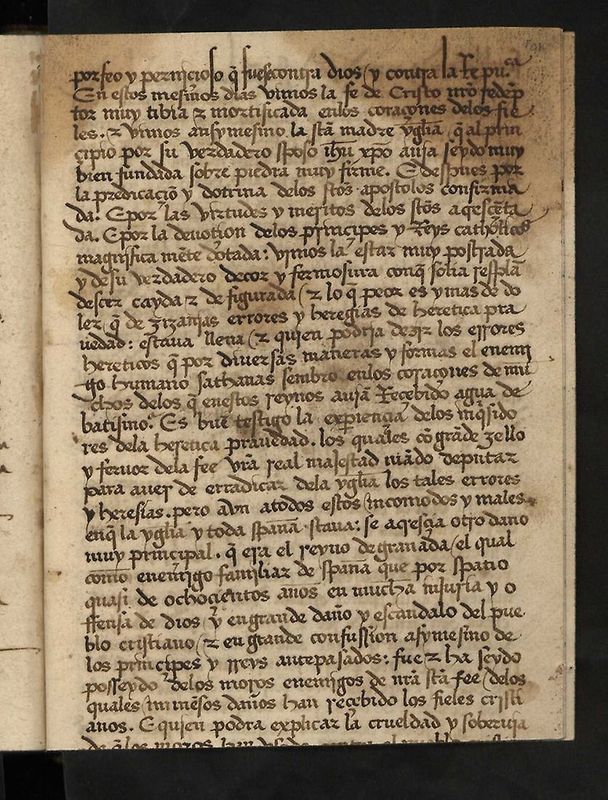 por feo y pernicioso q̃ fuese contra dios / y contra la Re pu.ca
En estos mesmos dias vimos la fe de Cristo nr̃o redẽp
tor muy tibia z mortificada enlos coraçones delos fie
les. z vimos ansy mesmo la stã madre ygłia, q̃ al prin
çipio por su verdadero sposo ihũ xpõ auja seydo muy
bien fundada sobre piedra muy firme. E despues por
la predicaciõ y dotrina delos stõs apostolos confirma
da. E por las virtudes y meritos delos stõs acresçẽta
da. E por la deuotion delos principes y Reys catholicos
magnifica mẽte dotada: vimos la estar muy postrada
y de su verdadero decor y fermosura conq̃ solia resplã
desçer cayda z de figurada / z lo q̃ peor es y mas de do
ler q̃ de zizanjas errores y heregias de heretica pra
uedad: estaua llena / z quien podria dezir los errores
hereticos q̃ por diuersas maneras y formas el enemj
go humano sathanas sembro enlos coraçones de mu
chos delos q̃ enestos reynos aujã Recebido agua de
batismo. Es buẽ testigo la experiençia delos inq̃sido
res dela heretica prauedad. los quales cõ grãde zello
y feruor dela fee vr̃a real majestad mãdo deputar
para auer de erradicar dela ygłia los tales errores
y heresias. pero avn atodos estos incomodos y males
enq̃ la ygłia y toda spanã staua: se acresçia otro daño
muy principal. q̃ era el reyno de granada / el qual
como enemigo familiar de spana que por spatio
quasi de ochocientos anos en mucha injuria y o
ffensa de dios y engrande daño y escandalo del pue
blo cristiano / z en grande confussion asymesmo de
los principes y rreys antepasados: fue z ha seydo
posseydo delos moros enemigos de nr̃a stã fee / delos
quales inmẽsos daños han recebido los fieles cristi
anos. E quien podra explicar la crueldad y soberuia